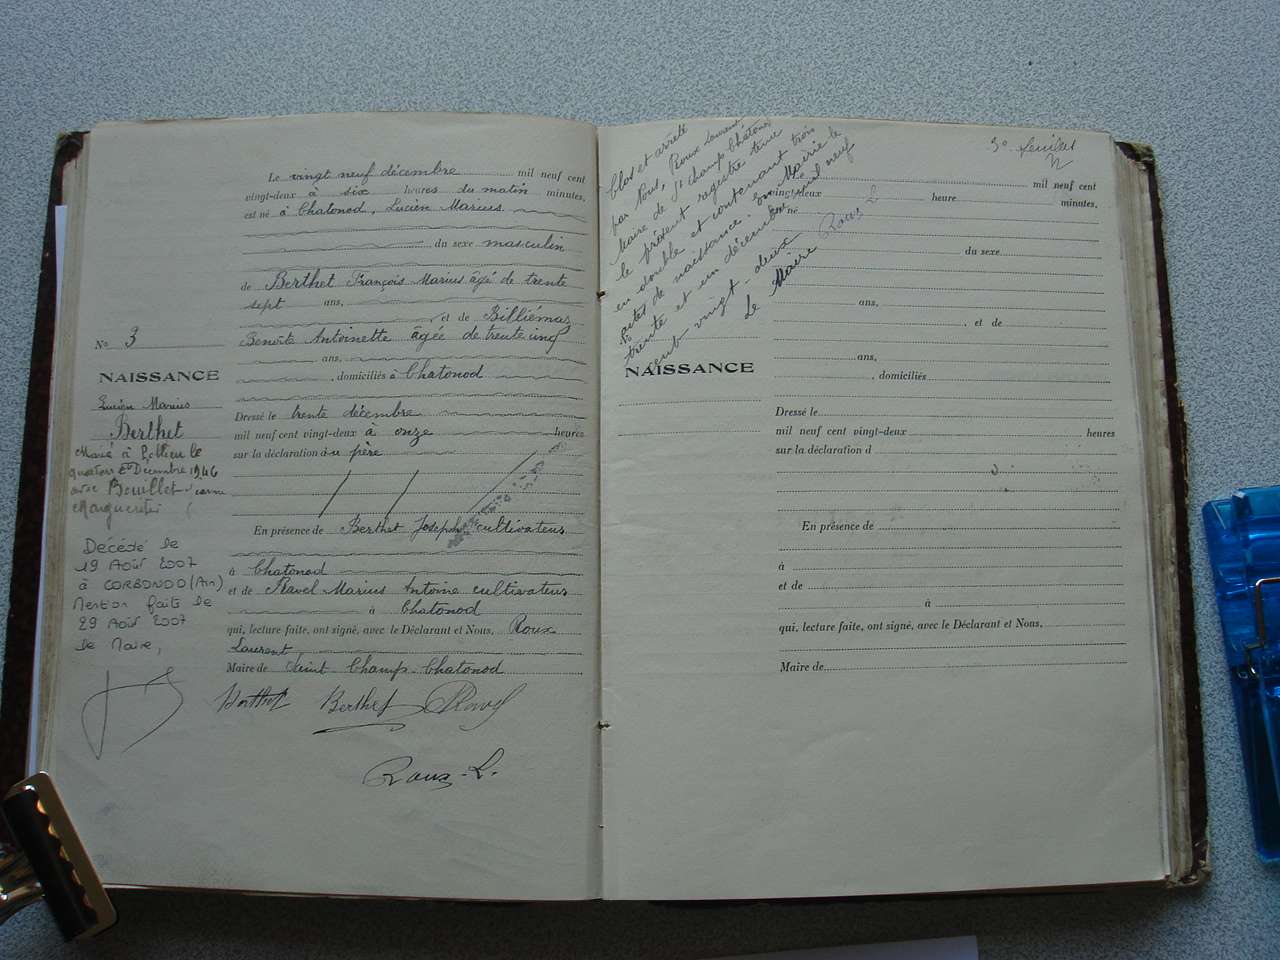 Le vingt neuf décembre mil neuf cent
vingt-deux à six heures du matin minutes,
est né à Chatonod, Lucien Marius
du sexe masculin
de Berthet François Marius âgé de trente
sept ans,
et de Billiémaz
Benoite Antoinette âgée de trente cinq
ans,
, domiciliés à Chatonod
Dressé le trente décembre
mil neuf cent vingt-deux à onze heures
sur la déclaration du père
En présence de Berthet Joseph cultivateur
à Chatonod
et de Ravel Marius Antoine cultivateur
à Chatonod
qui, lecture faite, ont signé, avec le Déclarant et Nous, Roux
Laurent
Maire de Saint Champ-Chatonod
Berthet Berthet Ravel
Roux-L.
No 3
NAISSANCE
Lucien Marius
Berthet
Marié à le
quatorze Décembre 1946
avec Bouillet
Marguerite
Décédé le
19 Août 2007
à CORBONOD (Ain)
Mention faite le
29 Août 2007
Le Maire,
Clos et arrêté
par Nous, Roux Laurent
Maire de St Champ Chatonod
le présent registre tenu
en double et contenant trois
actes de naissance. En Mairie le
trente et un décembre mil neuf
cent vingt-deux
Le Maire Roux L
3e feuillet
mil neuf cent
vingt-deux heure minutes,
né
du sexe
ans,
, et de
ans,
, domiciliés
No
NAISSANCE
Dressé le
mil neuf cent vingt-deux heures
sur la déclaration d
En présence de
à
et de
à
qui, lecture faite, ont signé, avec le Déclarant et Nous,
Maire de